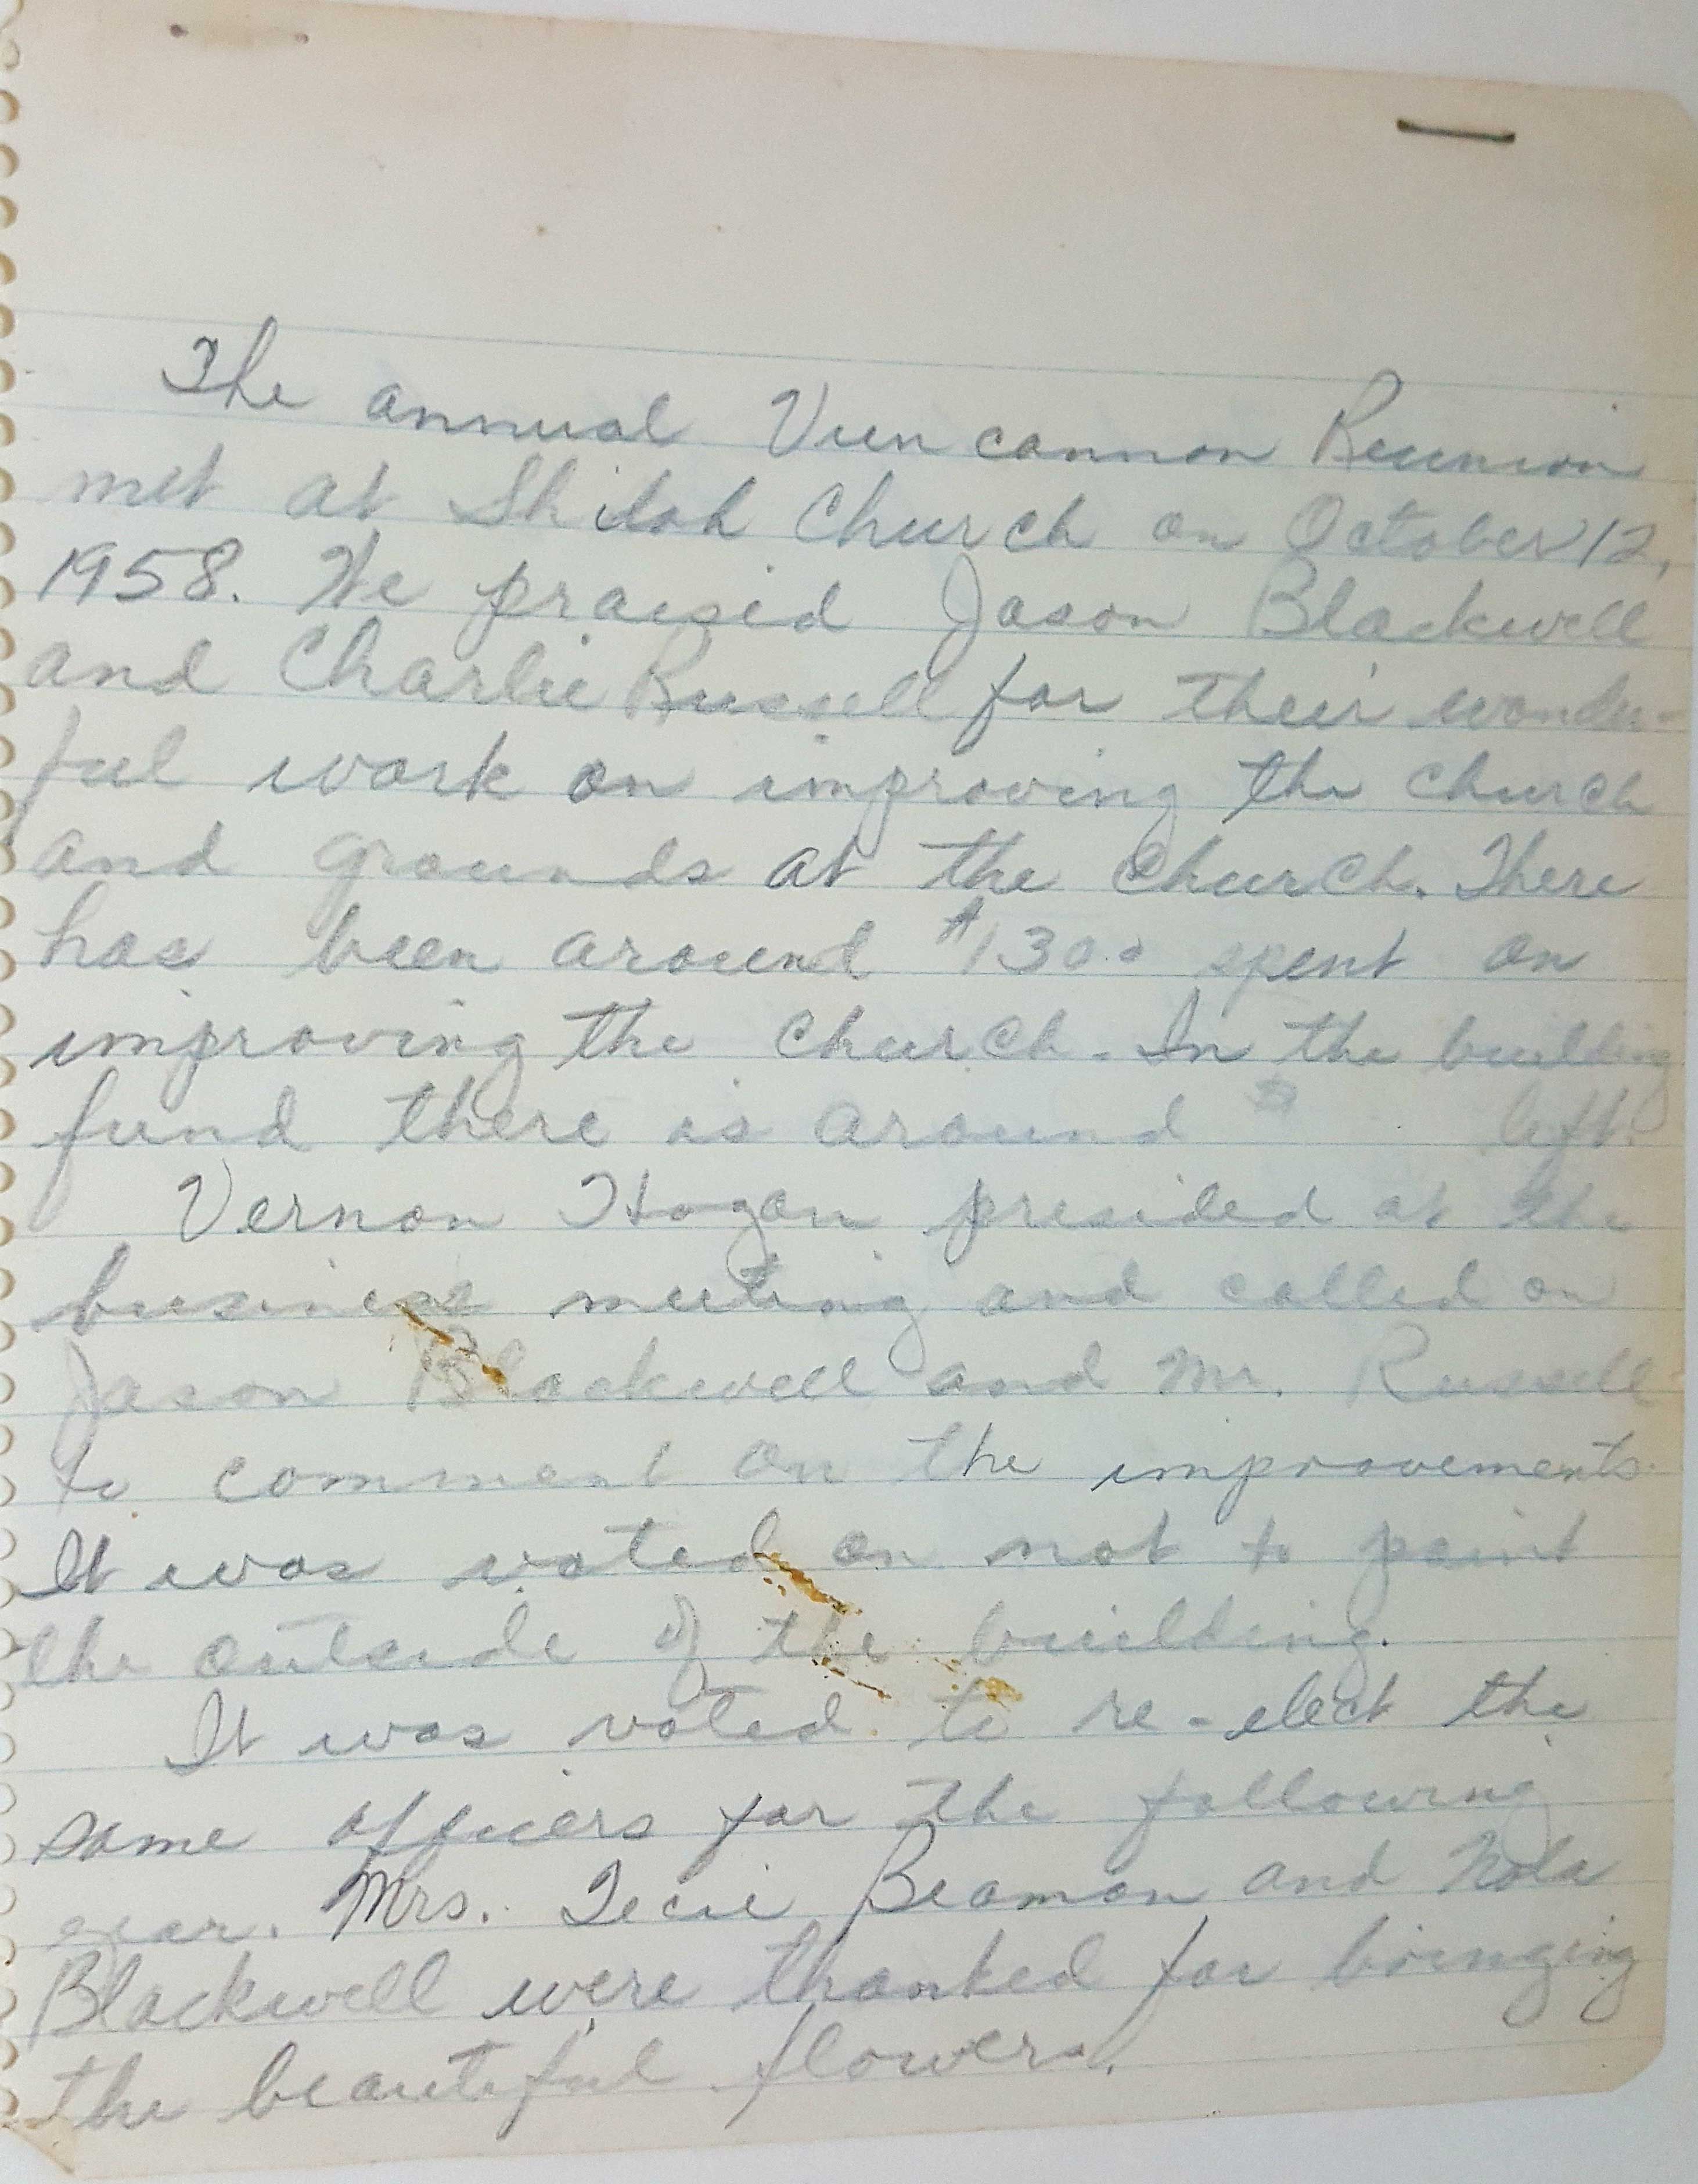 The annual Vuncannon Reunion
met at Shiloh Church on October 12,
1958. We praised Jason Blackwell
and Charlie Russell for their wonder-
ful work on improving the church
and grounds at the church. There
has been around $1300 spent on
improving the church. In the building
fund there is around $ left.
Vernon Hogan presided at the
business meeting and called on
Jason Blackwell and Mr. Russell
to comment on the improvements.
It was voted on not to paint
the outside of the building.
It was voted to re-elect the
same officers for the following
year. Mrs. Beaman and Nola
Blackwell were thanked for bringing
the beautiful flowers.